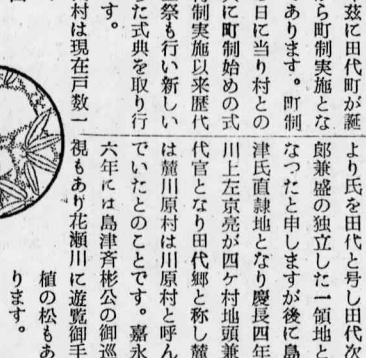 茲に田代町が誕
ら町制実施とな
であります。町制
日に当り村との
に町制始めの式
町制実施以来歴代
祭も行い新しい
た式典を取り行
す。
村は現在戸数一
より氏を田代と号し田代次
郎兼盛の独立した一領地と
なつたと申しますが後に島
津氏直隷地となり慶長四年
川上左京亮が四ケ村地頭兼
代官となり田代郷と称し麓
は麓川原村は川原村と呼ん
でいたとのことです。嘉永
六年には島津斉彬公の御巡
視もあり花瀬川に遊覧御手
植の松もあ
ります。